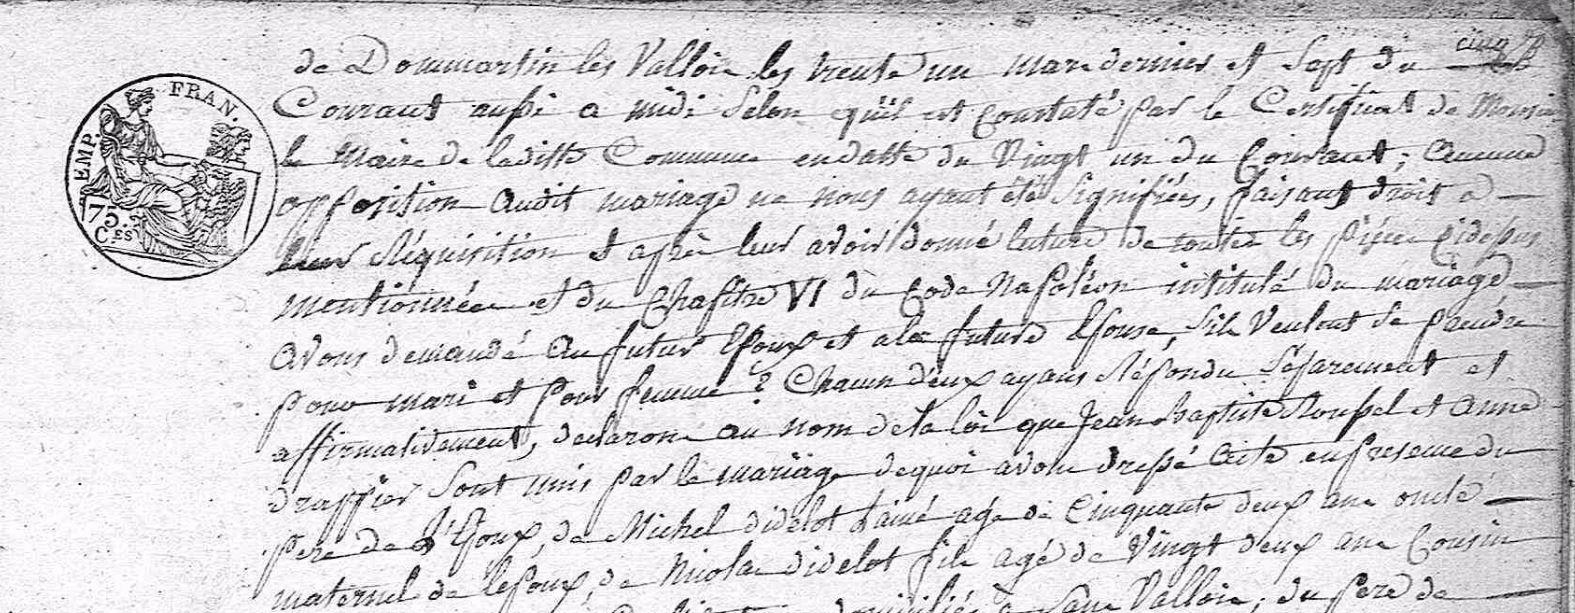 cinq
de Dommartin les Vallois les trente un mars dernier et Sept du
EMP. FRAN.
75.
C.ES
Courant aussi a midi Selon qu'il est constaté par le Certificat de Monsieur
le Maire de laditte Commune en datte du Vingt un du Courant; aucune
opposition audit mariage ne nous ayant été Signifiées, faisant droit a
leur Réquisition et aprè leur avoir donné lecture de toutes les pièces cidessus
mentionnées et du Chapitre VI du Code Napoléon intitulé du mariage
avons demandé au futur Epoux et a la future Epouse, s'ils Veulent Se prendre
pour mari et pour femme? Chacun d'eux ayans Répondu Séparement et
affirmativement, declarons au nom de la loi que Jean Baptiste Roussel et Anne
drappier Sont unis par le mariage dequoi avons dressé acte en presence du
pere de l'Epoux, de Michel didelot L'ainé agé de Cinquante deux ans oncle
maternel de lepoux, de Nicolas didelot fils agé de Vingt deux ans Cousin
domiciliés a Sans Vallois, du pere de